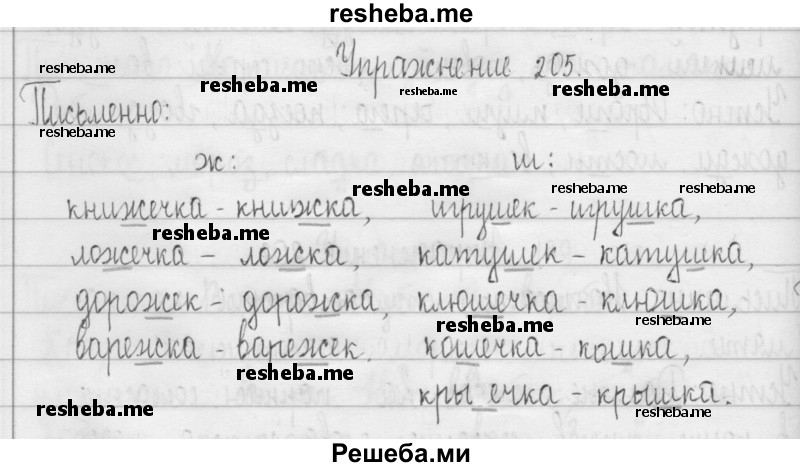 resheba.me
Упражнение 205.
resheba.me resheba.me resheba.me resheba.me
Письменно:
resheba.me
ж: ш:
resheba.me resheba.me resheba.me
книжечка - книжка, игрушек - игрушка,
resheba.me
ложечка - ложка, катушек - катушка,
дорожек - дорожка, клюшечка - клюшка,
resheba.me resheba.me
варежка - варежек, кошечка - кошка,
resheba.me
кры ечка - крышка.
resheba.me resheba.me
Решеба.ми